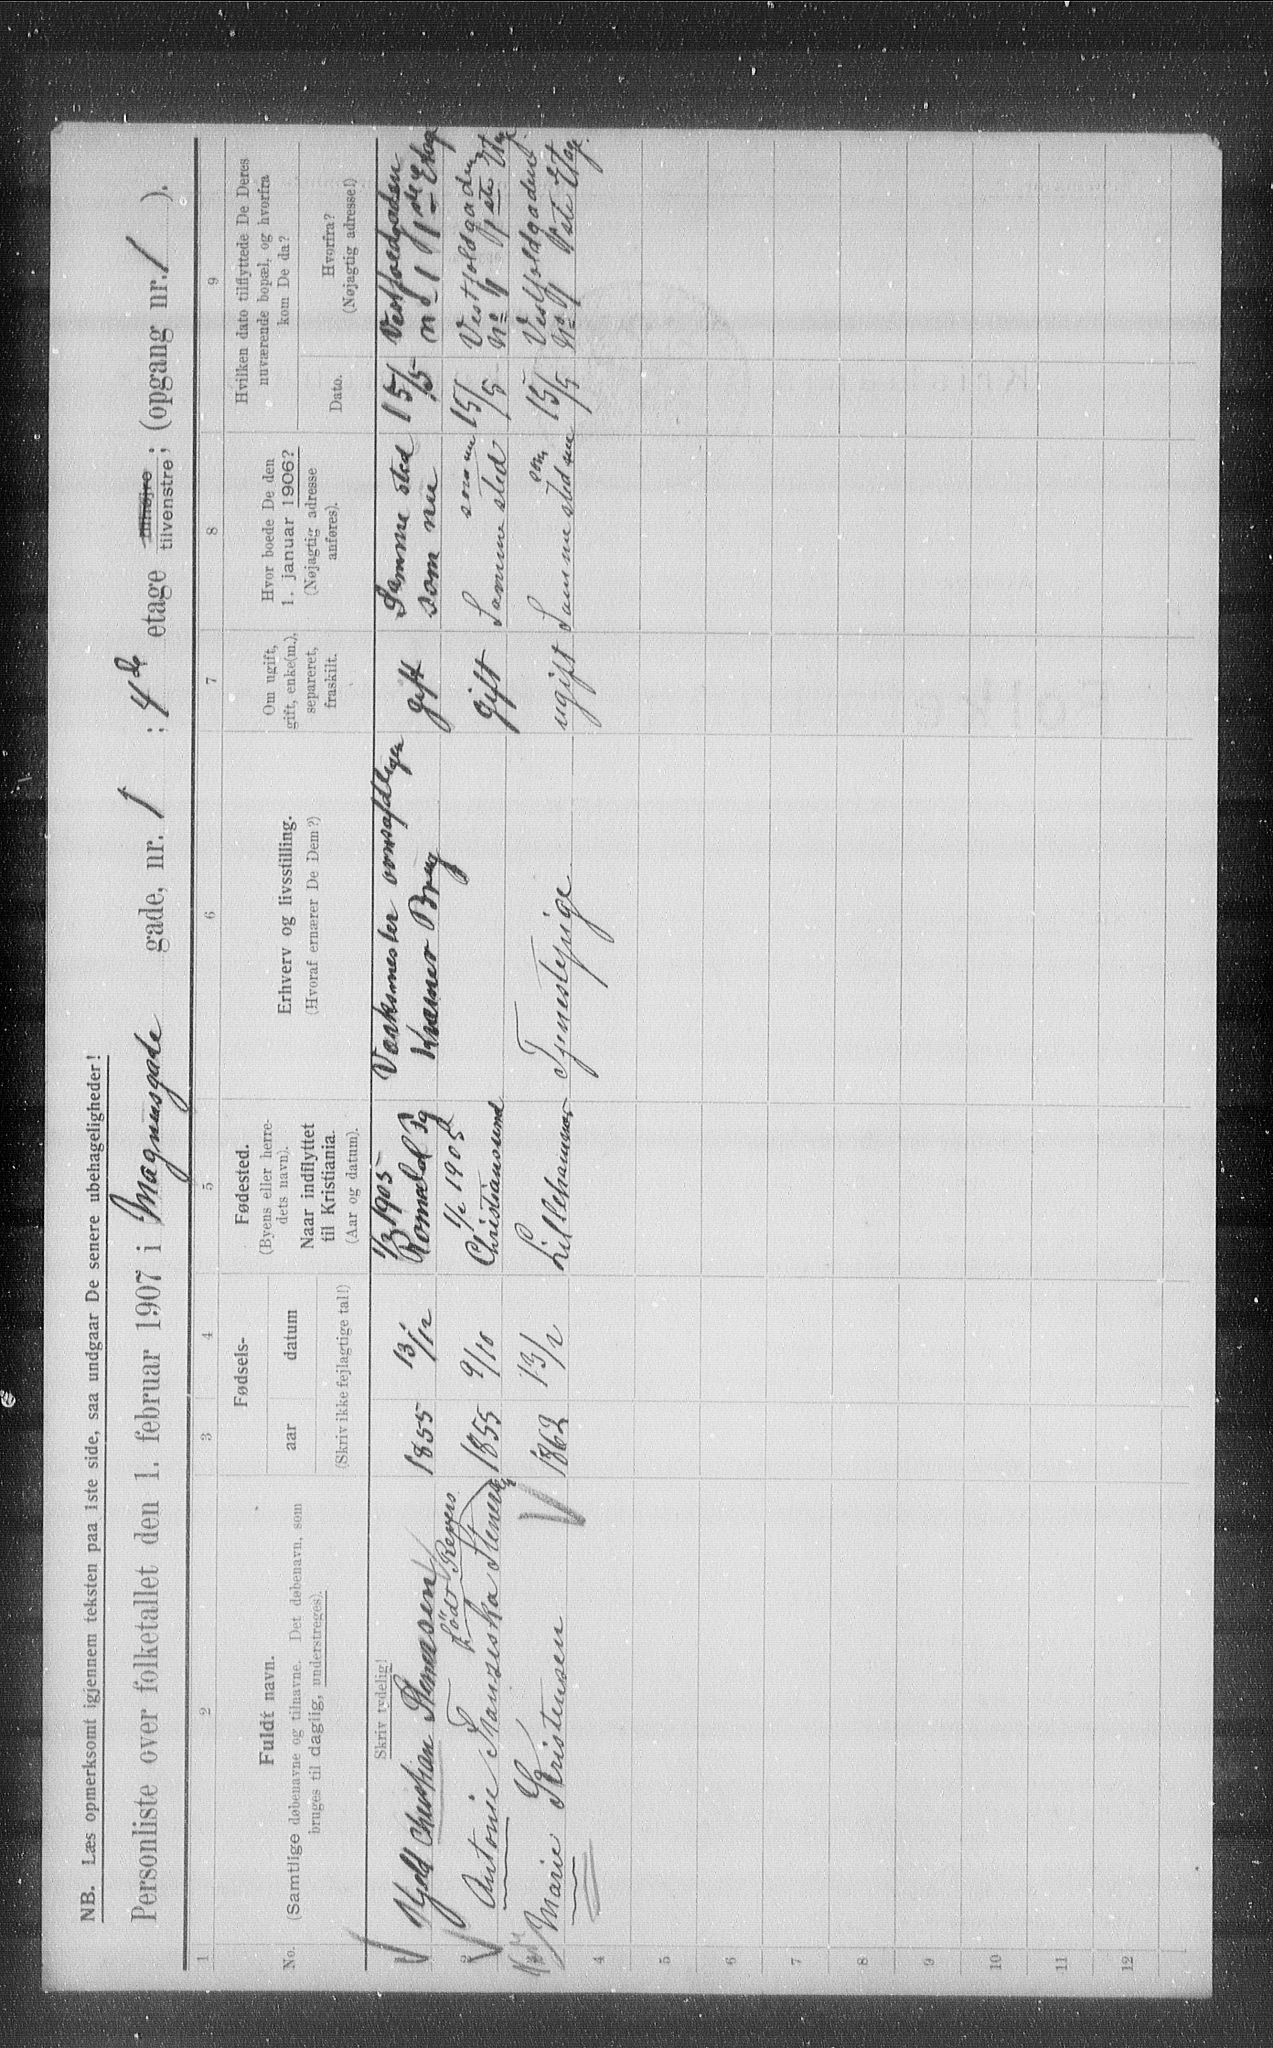 NB. Læs opmerksomt igjennem teksten paa 1ste side, saa undgaar De senere ubehageligheder!
Personliste over folketallet den 1. februar 1907 i Magnusgade gade, nr. 1 ; 4de etage tilhøire tilvenstre; (opgang nr. 1 ).
1 2 3 4 5 6 7 8 9
No.
Fuldt navn.
(Samtlige døbenavne og tilnavne. Det døbenavn, som
bruges til daglig, understreges).
Fødsels-
aar datum
(Skriv ikke fejlagtige tal!)
Fødested.
(Byens eller herre-
dets navn).
Naar indflyttet
til Kristiania.
(Aar og datum).
Erhverv og livsstilling.
(Hvoraf ernærer De Dem?)
Om ugift,
gift, enke(m.),
separeret,
fraskilt.
Hvor boede De den
1. januar 1906?
(Nøjagtig adresse
anføres).
Hvilken dato tilflyttede De Deres
nuværende bopæl, og hvorfra
kom De da?
Dato.
Hvorfra?
(Nøjagtig adresse!)
Skriv tydelig!
Kjeld Christian Stenersen 1855 13/12 1/2 1905 Romedal Værksmester
Kværner Brug gift Samme sted
som nu 15/5 Vestfoldgaden
No 1 1ste Etage
2 Antonie Franziska Stenersen født 1855 9/10 1/2 1905
Christianssund gift Samme sted som nu 15/5 Vestfoldgaden
No 1 1ste Etage
Marie Kristensen 1862 13/2 Lillehammer Tjenestepige ugift Samme sted som nu 15/5 Vestfoldgaden
No 1 1ste Etage.
4
5
6
7
8
9
10
11
12